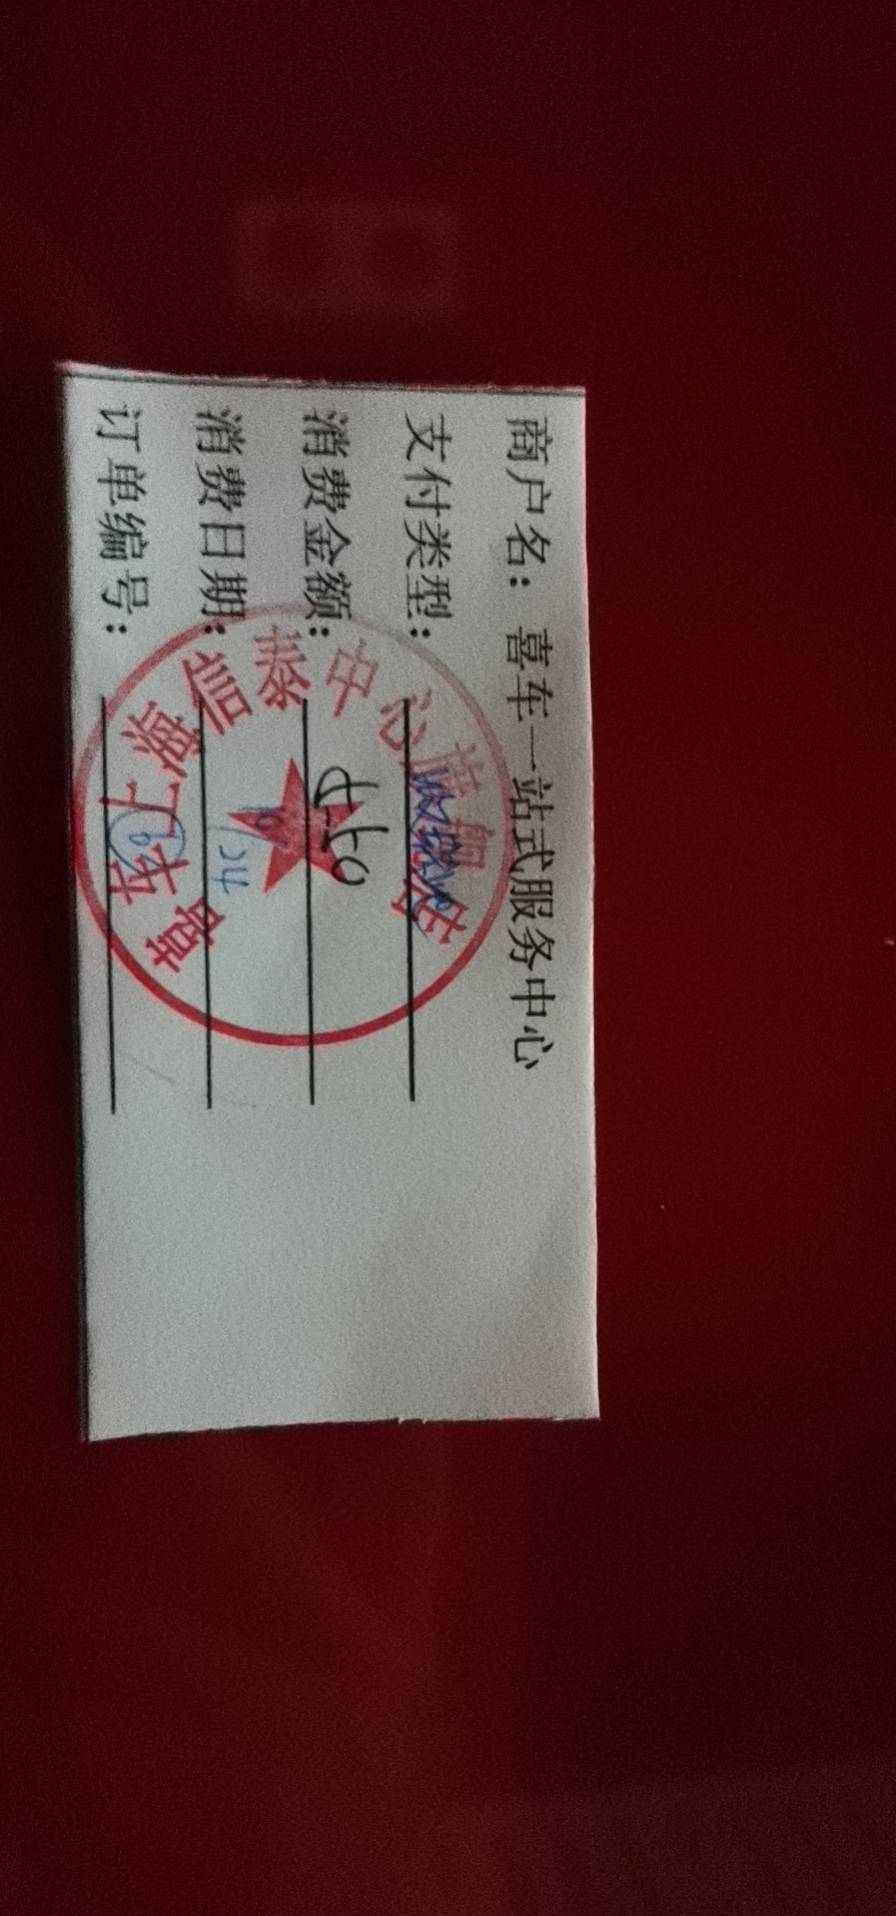 商户名：喜车一站式服务中心
支付类型：
消费金额：
消费日期：
订单编号：
喜车上海信泰中心旗舰店